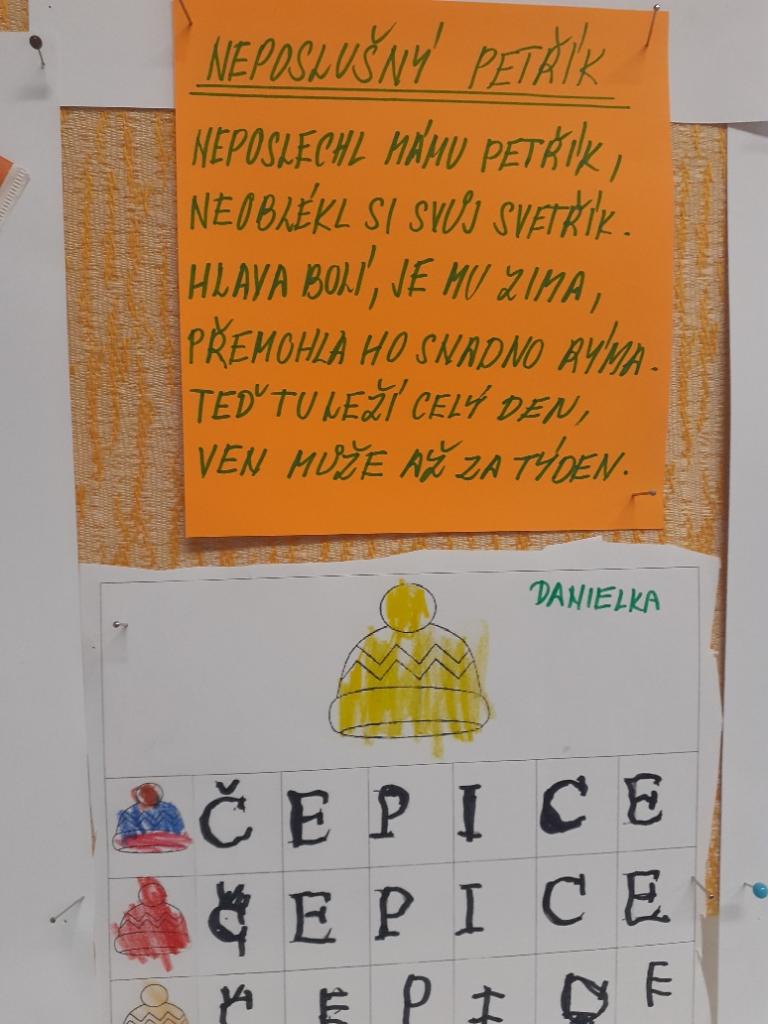 NEPOSLUŠNÝ PETŘÍK
NEPOSLECHL MÁMU PETŘÍK,
NEOBLÉKL SI SVŮJ SVETŘÍK.
HLAVA BOLÍ, JE MU ZIMA,
PŘEMOHLA HO SNADNO RÝMA.
TEĎ TU LEŽÍ CELÝ DEN,
VEN MŮŽE AŽ ZA TÝDEN.
DANIELKA
ČEPICE
ČEPICE